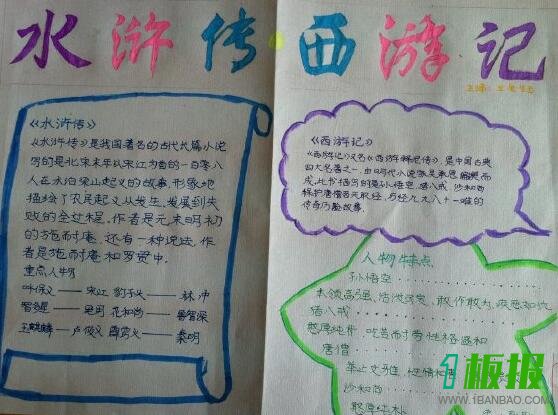 水浒传·西游记
《水浒传》
《水浒传》是我国著名的古代长篇小说
写的是北宋末年以宋江为首的一百零八
人在水泊梁山起义的故事,形象地
描绘了农民起义从发生、发展到失
败的全过程,作者是元末明初
的施耐庵,还有一种说法,作
者是施耐庵和罗贯中.
重点人物
呼保义——宋江 豹子头——林冲
智多星——吴用 花和尚——鲁智深
玉麒麟—卢俊义 霹雳火—秦明
《西游记》
《西游记》又名《西游释厄传》,是中国古典
四大名著之一,由明代小说家吴承恩编撰而
成,此书描写的是孙悟空、猪八戒、沙和尚
保护唐僧西天取经、历经九九八十一难的
传奇历险故事.
人物特点
孙悟空
本领高强、
敢作敢为、疾恶如仇
猪八戒
憨厚纯朴 吃苦耐劳性格温和
唐僧
举止文雅、性情和善
沙和尚
憨厚纯朴
1板报
WWW.1BANBAO.COM